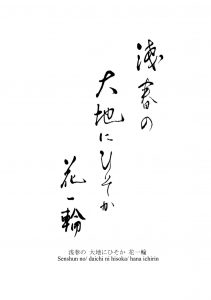 浅春の
大地にひそか
花一輪
浅春の 大地にひそか 花一輪
Senshun no/ daichi ni hisoka/ hana ichirin